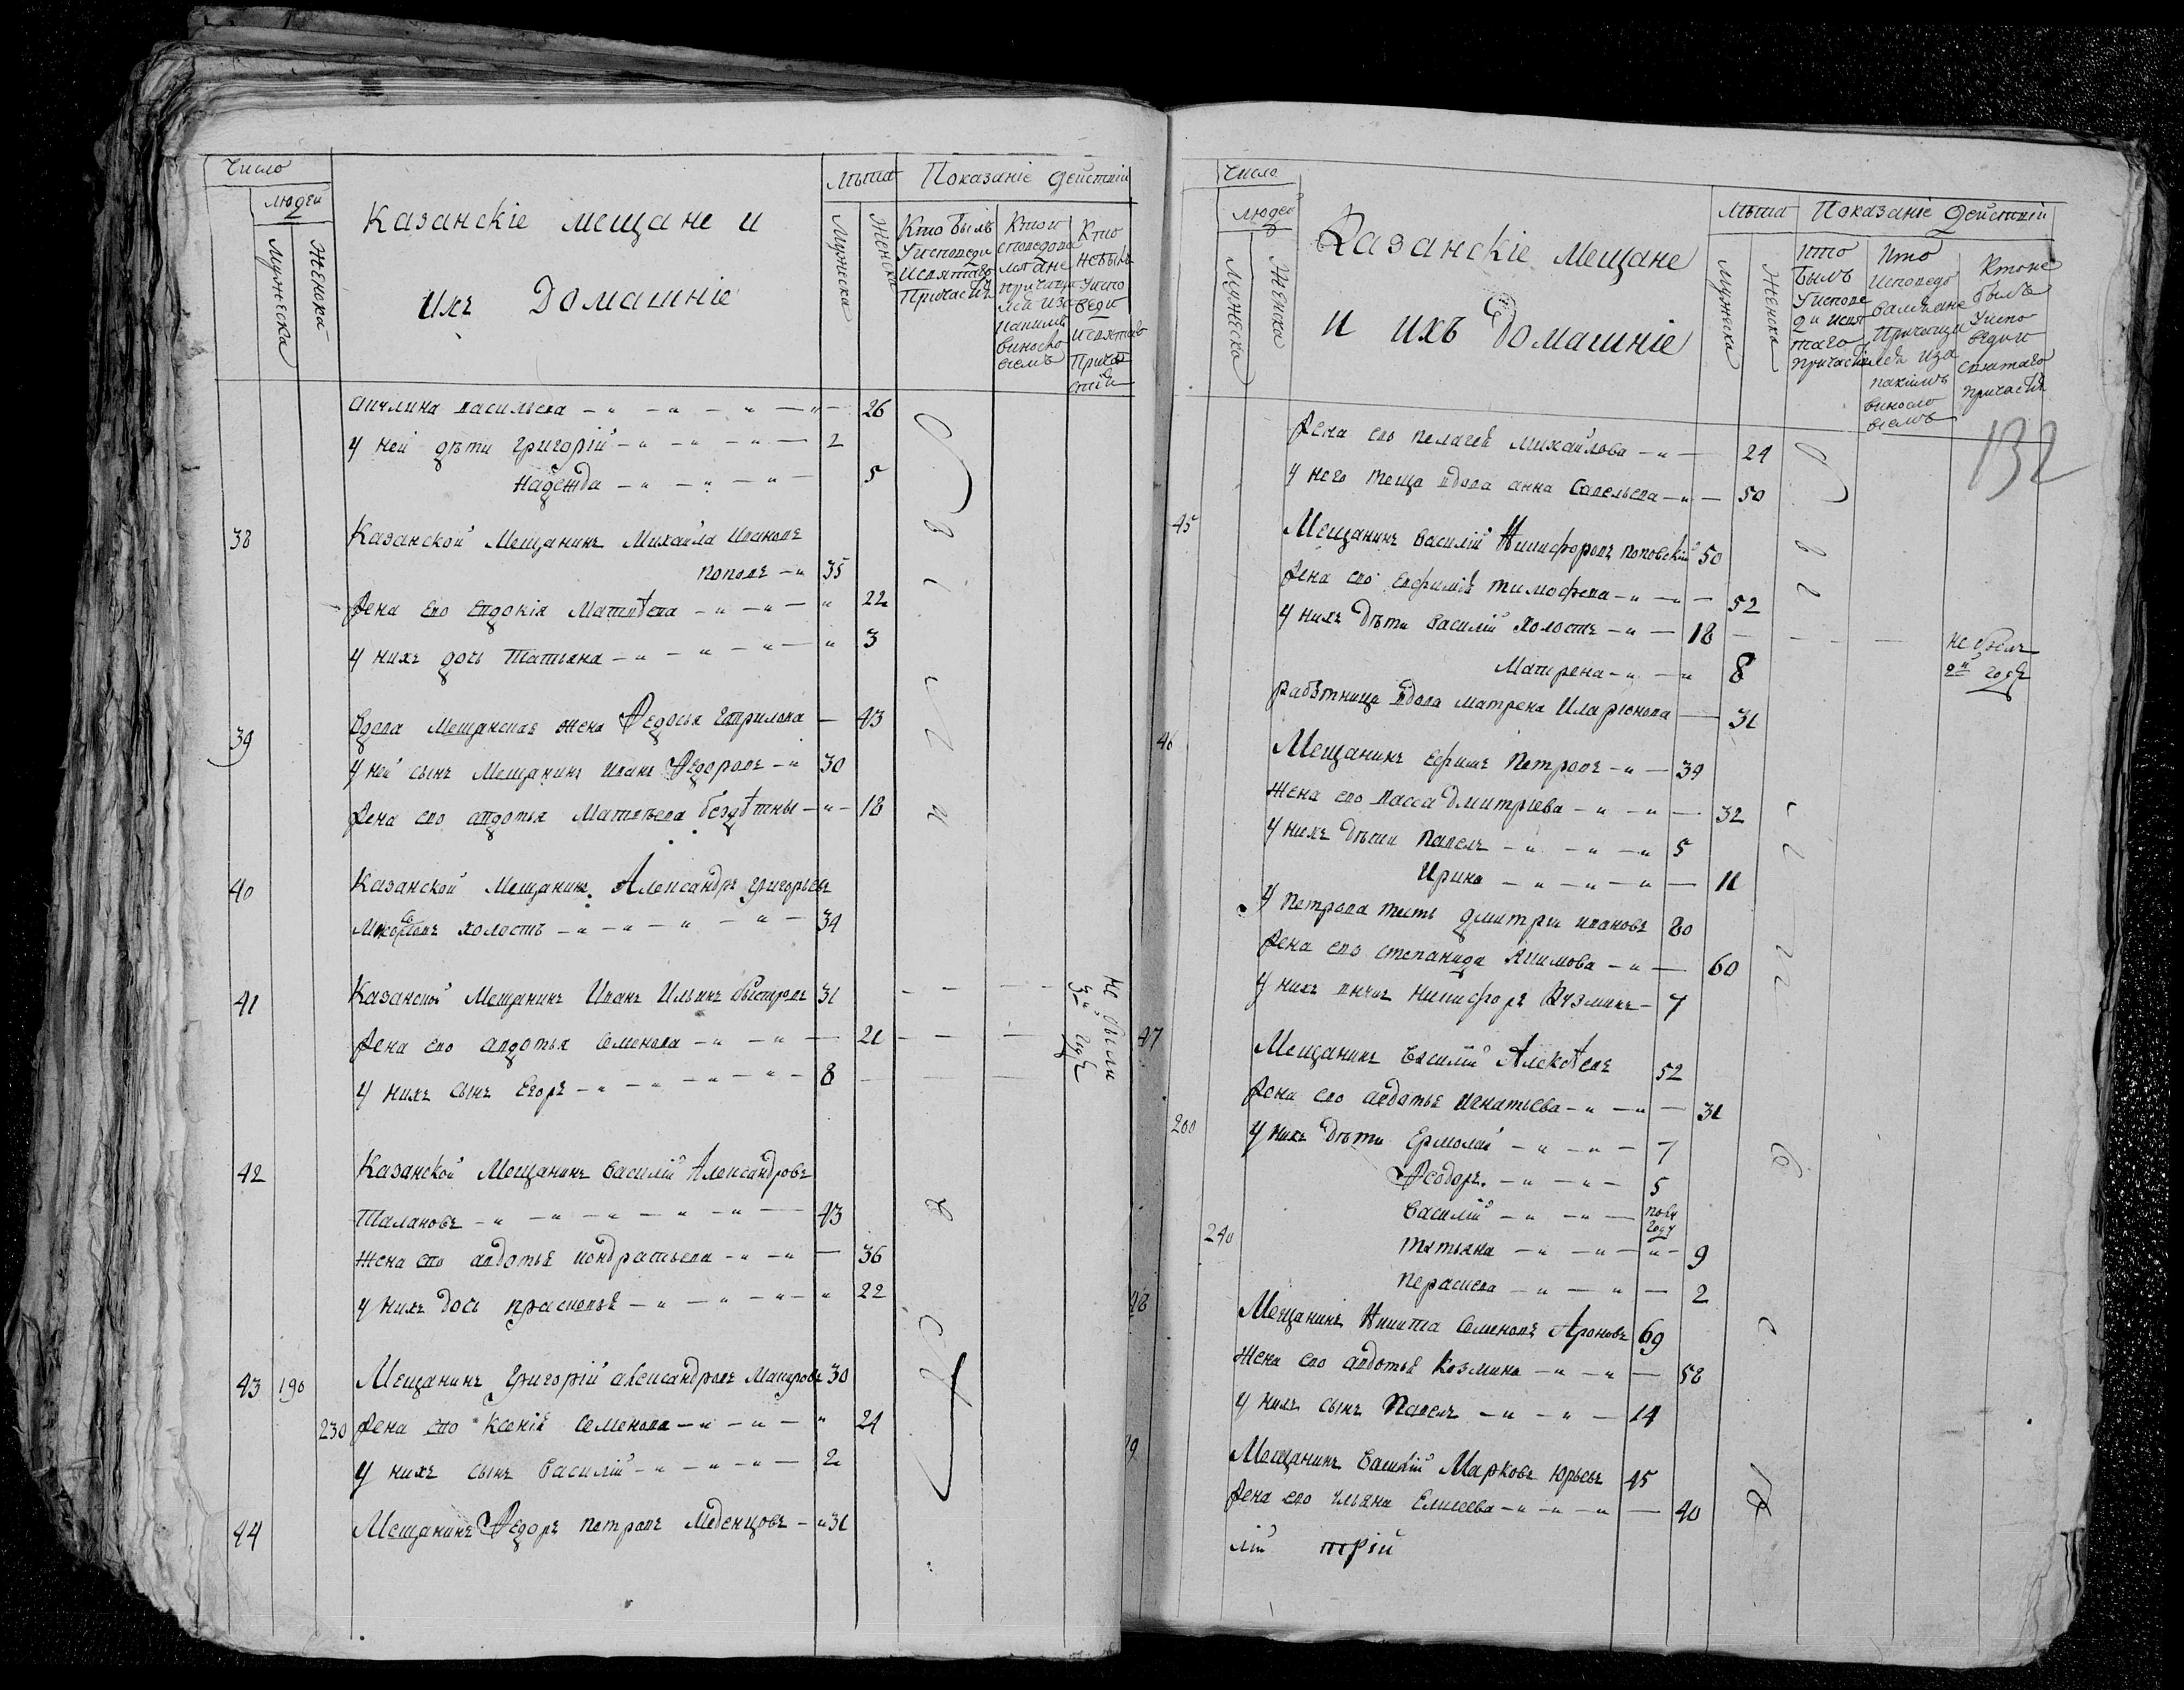 Число
людей
Мужеска
Женска
Казанскіе мещане и
ихъ Домашніе
Лѣта
Мужеска
Женска
Показаніе Действій
Кто былъ
Уисповеди
Исвятаго
Причастія
Кто и
споведова
лся ане
причаща
лся иза
какимъ
виносло
віемъ
Кто
небылъ
Уиспо
веди
Исвятаго
Прича
стія
Васильева 26
У ней дѣти Григорій 2
Надежда 5
38 Казанской Мещанинъ Михайла Ивановъ
Поповъ 35
Жена ево Евдокія Матвѣева 22
У нихъ дочь Татьяна 3
39 Вдова Мещанская жена Ѳедосья Гаврилова 43
У ней сынъ Мещанинъ Иванъ Ѳедоровъ 30
Жена ево авдотья Матвѣева бездѣтны 18
40 Казанской Мещанинъ Александръ Григорьевъ
холостъ 34
41 Казанской Мещанинъ Иванъ Ильинъ быстровъ 31
Не были
3й годъ
Жена ево авдотья Семенова 21
У нихъ сынъ Егоръ 8
42 Казанской Мещанинъ Василій Александровъ
Талановъ 43
Жена ево авдотья кондратьева 36
У нихъ дочь прасковья 22
43 190 Мещанинъ Григорій александровъ 30
230 Жена ево Ксенія Семенова 24
У нихъ сынъ Василій 2
44 Мещанинъ Ѳедоръ Петровъ Меденцовъ 31
Число
людей
Мужеска
Женска
Казанскіе Мещане
и ихъ Домашніе
Лѣта
Мужеска
Женска
Показаніе Действій
Кто
былъ
Уиспове
ди исвя
таго
причастія
Кто
исповедо
валсяане
Причаща
лся иза
какимъ
виносло
віемъ
Ктоне
былъ
Уиспо
веди и
святаго
причастія
132
Жена ево пелагея Михайлова 24
У него теща вдова анна Савельева 50
45 Мещанинъ Василій Никифоровъ поповскій 50
Жена ево евфимія тимофеева 52
У нихъ дѣти василій холостъ 18
не былъ
2й годъ
Матрена 8
работница вдова матрена Иларіонова 31
46 Мещанинъ ефимъ Петровъ 39
Жена ево васса дмитріева 32
У нихъ дѣти Павелъ 5
Ирина 11
У Петрова тесть дмитри ивановъ 80
Жена ево степанида Акимова 60
У нихъ внукъ никифоръ Кузминъ 7
47 Мещанинъ василій Алексѣевъ 52
Жена ево авдотья игнатьева 31
200 У нихъ дѣти Ермолай 7
Ѳеодоръ 5
Василій полу
году
240 татьяна 9
Пераскева 2
48 Мещанинъ Никита Семеновъ Ароновъ 69
Жена ево авдотья Козмина 58
У нихъ сынъ Павелъ 14
49 Мещанинъ Василій Марковъ Юрьевъ 45
Жена ево ульяна Елисеева 40
лій